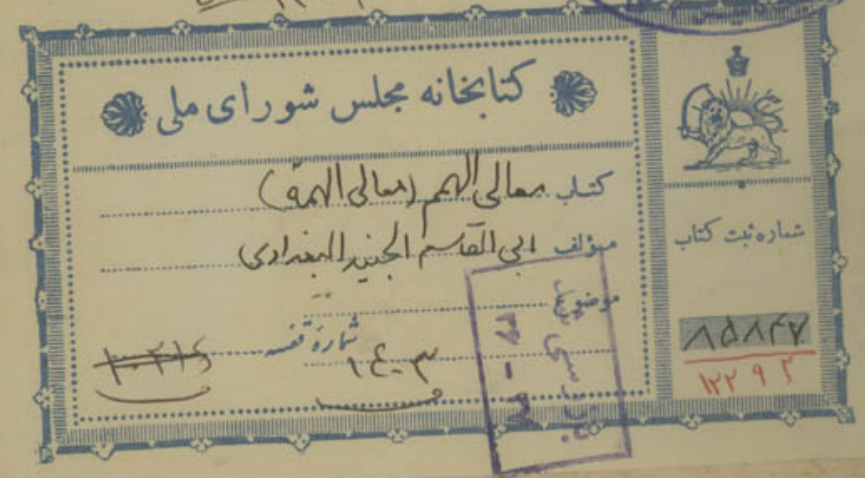 کتابخانه مجلس شورای ملی
کتاب معالی الهمم (معالی الهمة)
مؤلف ابی القاسم الجنید البغدادی
موضوع
شماره قفسه ۱۰۴۰۳
شماره ثبت کتاب
۸۵۸۴۷